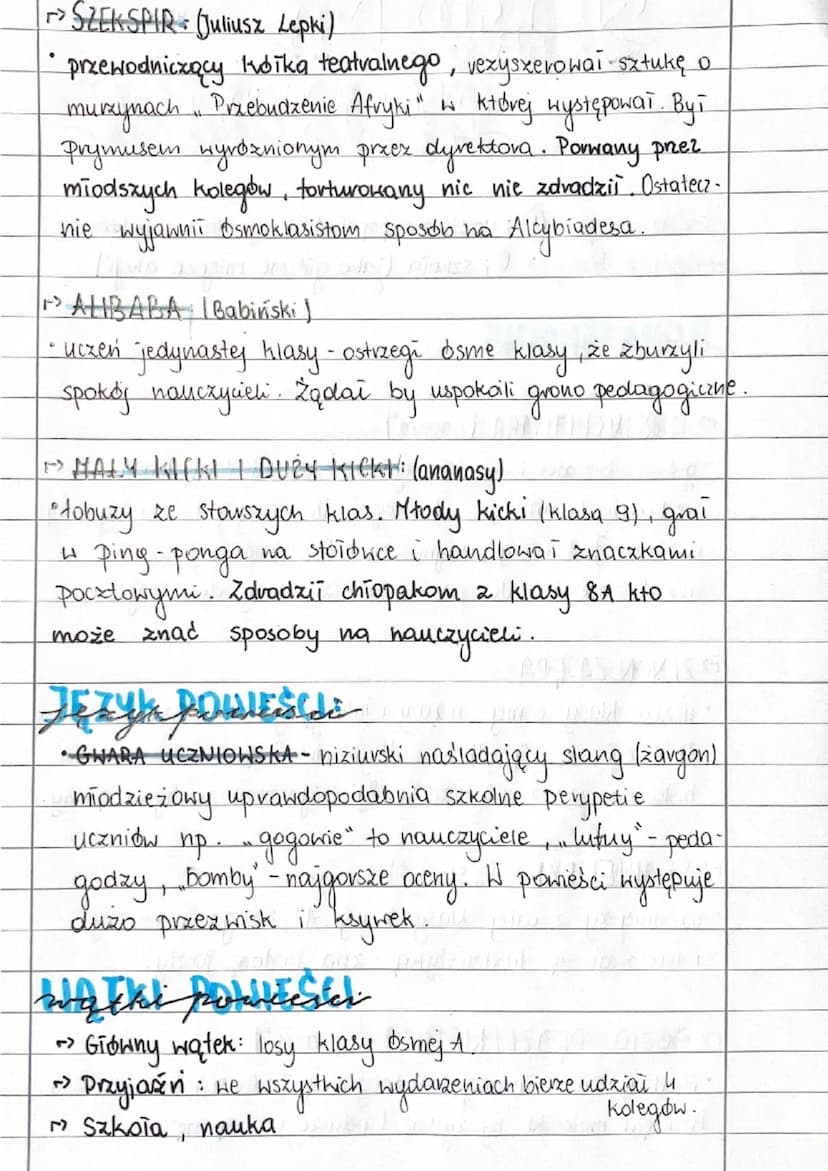 ↦ SZEKSPIR: (Juliusz Lepki)
• przewodniczący kółka teatralnego, reżyszerował sztukę o
murzynach „Przebudzenie Afryki" w której występował. Był
Prymusem wyróżnionym przez dyrektora. Porwany przez
młodszych kolegów, torturowany nic nie zdradził. Ostatecz-
nie wyjawnił ósmoklasistom sposób na Alcybiadesa.
↦ ALIBABA: (Babiński)
• uczeń jedynastej klasy - ostrzegł ósme klasy, że zburzyli
spokój nauczycieli. Żądał by uspokoili grono pedagogiczne.
↦ MAŁY KICKI I DUŻY KICKI: (ananasy)
• łobuzy ze starszych klas. Młody kicki (klasa 9), grał
w ping-ponga na stołówce i handlował znaczkami
pocztowymi. Zdradził chłopakom z klasy 8A kto
może znać sposoby na nauczycieli.
JĘZYK POWIEŚCI:
Język powieści
• GWARA UCZNIOWSKA - niziurski naśladający slang (żargon)
młodzieżowy uprawdopodabnia szkolne perypetie
uczniów np. „gogowie" to nauczyciele, „lufuy" - peda-
godzy, „bomby" - najgorsze oceny. W powieści występuje
dużo przezwisk i ksywek.
WĄTKI POWIEŚCI
wątki powieści
↦ Główny wątek: losy klasy ósmej A.
↦ Przyjaźń: we wszystkich wydarzeniach bierze udział 4
kolegów.
↦ Szkoła, nauka